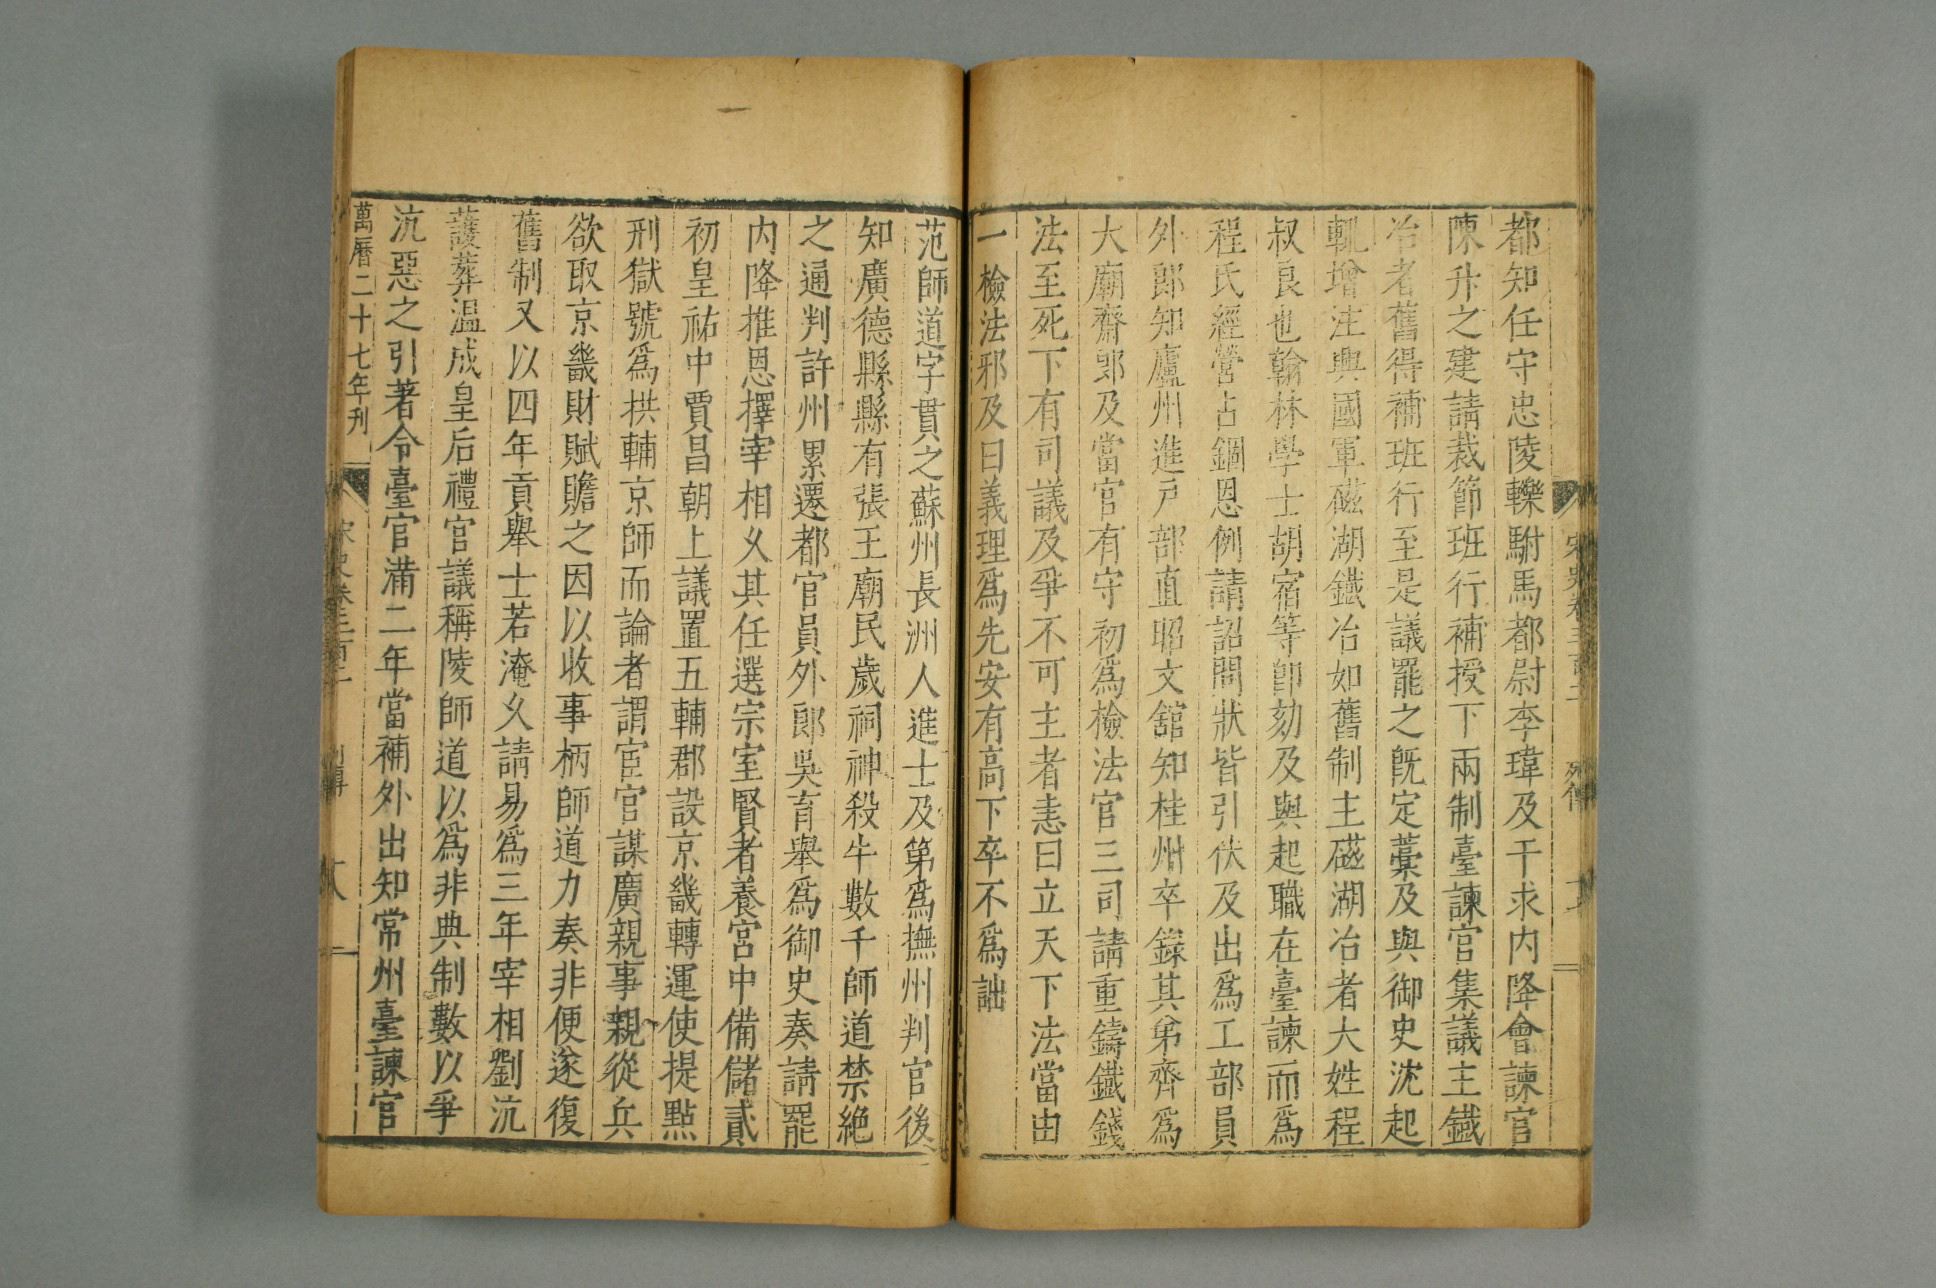 都知任守忠陵轢駙馬都尉李瑋及干求內降會諫官
陳升之建請裁節班行補授下兩制臺諫官集議主鐵
冶者舊得補班行至是議罷之既定藁及與御史沈起
輒增注興國軍磁湖鐵冶如舊制主磁湖冶者大姓程
叔良也翰林學士胡宿等卽劾及與起職在臺諫而爲
程氏經營占錮恩例請詔問狀皆引伏及出爲工部員
外郎知廬州進戶部直昭文舘知桂州卒錄其弟齊爲
大廟齋郎及當官有守初爲檢法官三司請重鑄鐵錢
法至死下有司議及爭不可主者恚曰立天下法當由
一檢法邪及曰義理爲先安有高下卒不爲詘
范師道字貫之蘇州長洲人進士及第爲撫州判官後
知廣德縣縣有張王廟民歲祠神殺牛數千師道禁絕
之通判許州累遷都官員外郎吳育舉爲御史奏請罷
內降推恩擇宰相乆其任選宗室賢者養宮中備儲貳
初皇祐中賈昌朝上議置五輔郡設京畿轉運使提點
刑獄號爲拱輔京師而論者謂宦官謀廣親事親從兵
欲取京畿財賦贍之因以收事柄師道力奏非便遂復
舊制又以四年貢舉士若淹乆請易爲三年宰相劉沆
護葬溫成皇后禮官議稱陵師道以爲非典制數以爭
沆惡之引著令臺官滿二年當補外出知常州臺諫官
萬曆二十七年刊
宋史卷三百二
列傳